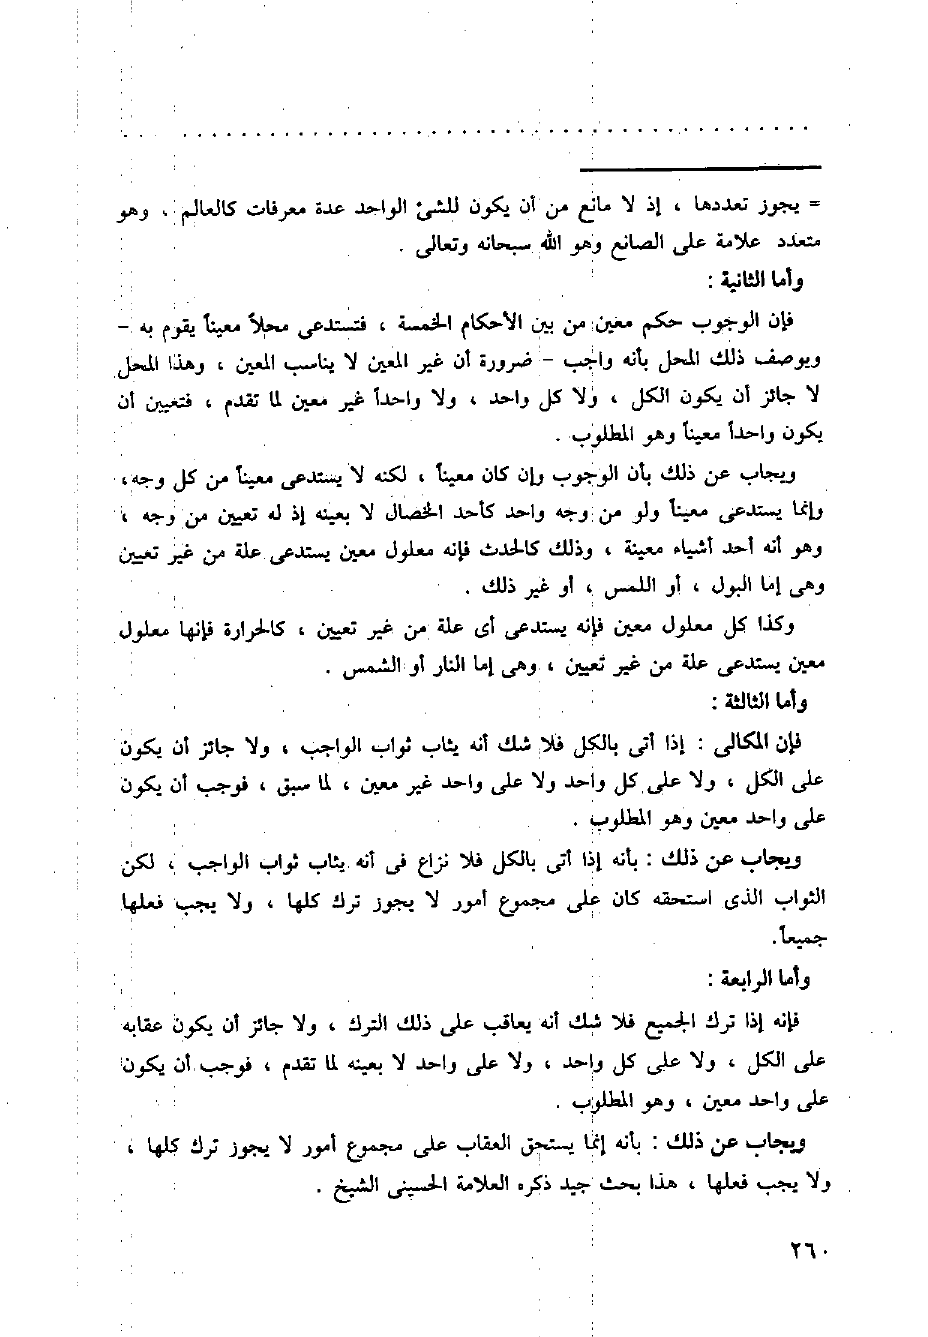 = يجوز تعددها ، إذ لا مانع من أن يكون للشئ الواحد عدة معرفات كالعالم ، وهو
متعدد علامة على الصانع وهو الله سبحانه وتعالى .
وأما الثانية :
فإن الوجوب حكم معين من بين الأحكام الخمسة ، فتستدعى محلاً معيناً يقوم به –
ويوصف ذلك المحل بأنه واجب – ضرورة أن غير المعين لا يناسب المعين ، وهذا المحل
لا جائز أن يكون الكل ، ولا كل واحد ، ولا واحداً غير معين لما تقدم ، فتعيين أن
يكون واحداً معيناً وهو المطلوب .
ويجاب عن ذلك بأن الوجوب وإن كان معيناً ، لكنه لا يستدعى معيناً من كل وجه ،
وإنما يستدعى معيناً ولو من وجه واحد كأحد الخصال لا بعينه إذ له تعيين من وجه ،
وهو أنه أحد أشياء معينة ، وذلك كالحدث فإنه معلول معين يستدعى علة من غير تعيين
وهى إما البول ، أو اللمس ، أو غير ذلك .
وكذا كل معلول معين فإنه يستدعى أى علة من غير تعيين ، كالحرارة فإنها معلول
معين يستدعى علة من غير تعيين ، وهى إما النار أو الشمس .
وأما الثالثة :
فإن المكالى : إذا أتى بالكل فلا شك أنه يثاب ثواب الواجب ، ولا جائز أن يكون
على الكل ، ولا على كل واحد ولا على واحد غير معين ، لما سبق ، فوجب أن يكون
على واحد معين وهو المطلوب .
ويجاب عن ذلك : بأنه إذا أتى بالكل فلا نزاع فى أنه يثاب ثواب الواجب ، لكن
الثواب الذى استحقه كان على مجموع أمور لا يجوز ترك كلها ، ولا يجب فعلها
جميعاً.
وأما الرابعة :
فإنه إذا ترك الجميع فلا شك أنه يعاقب على ذلك الترك ، ولا جائز أن يكون عقابه
على الكل ، ولا على كل واحد ، ولا على واحد لا بعينه لما تقدم ، فوجب أن يكون
على واحد معين ، وهو المطلوب .
ويجاب عن ذلك : بأنه إنما يستحق العقاب على مجموع أمور لا يجوز ترك كلها ،
ولا يجب فعلها ، هذا بحث جيد ذكره العلامة الحسينى الشيخ .
٢٦٠